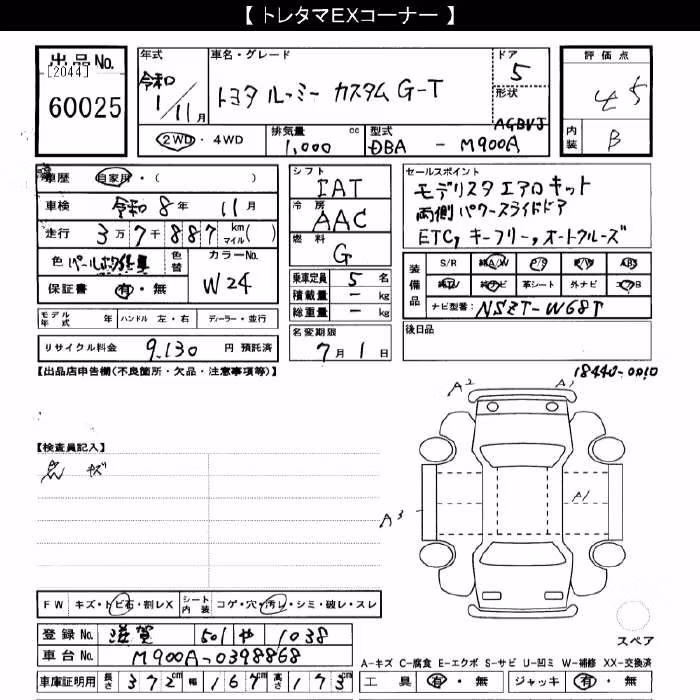 【 トレタマEXコーナー 】
出品 No. [2044] 60025
年式 令和 1/11月
車名・グレード トヨタ ルーミー カスタム G-T
ドア 5
形状 AGBVJ
評価点 4.5
内装 B
2WD・4WD
排気量 1,000 cc
型式 DBA - M900A
車歴 自家用・( )
車検 令和 8年 11月
走行 3万7千887 km マイル( )
色
色替
カラーNo. W24
保証書 有・無
シフト IAT
冷房 AAC
燃料 G
乗車定員 5 名
積載量 ー kg
総重量 ー kg
セールスポイント
モデリスタ エアロ キット
両側 パワースライドドア
ETC, キーフリー, オートクルーズ
装備品
S/R 純A/W P/S P/W ABS
純TV 純ナビ 革シート 外ナビ エアB
ナビ型番: NSZT-W68T
モデル年式 年 ハンドル 左・右 ディーラー・並行
リサイクル料金 9,130 円 預託済
名変期限 7月 1日
後日品
【出品店申告欄(不良箇所・欠品・注意事項等)】
18440-0010
A2 A1
【検査員記入】
点 キズ
A3 A1
FW キズ・トビ石・割レX シート内装 コゲ・穴・汚レ・シミ・破レ・スレ
スペア
登録 No. 滋賀 501 や 1038
車台 No. M900A-0398868
A-キズ C-腐食 E-エクボ S-サビ U-凹ミ W-補修 XX-交換済
車庫証明用 長さ 372cm 幅 167cm 高さ 173cm
工具 有・無 ジャッキ 有・無